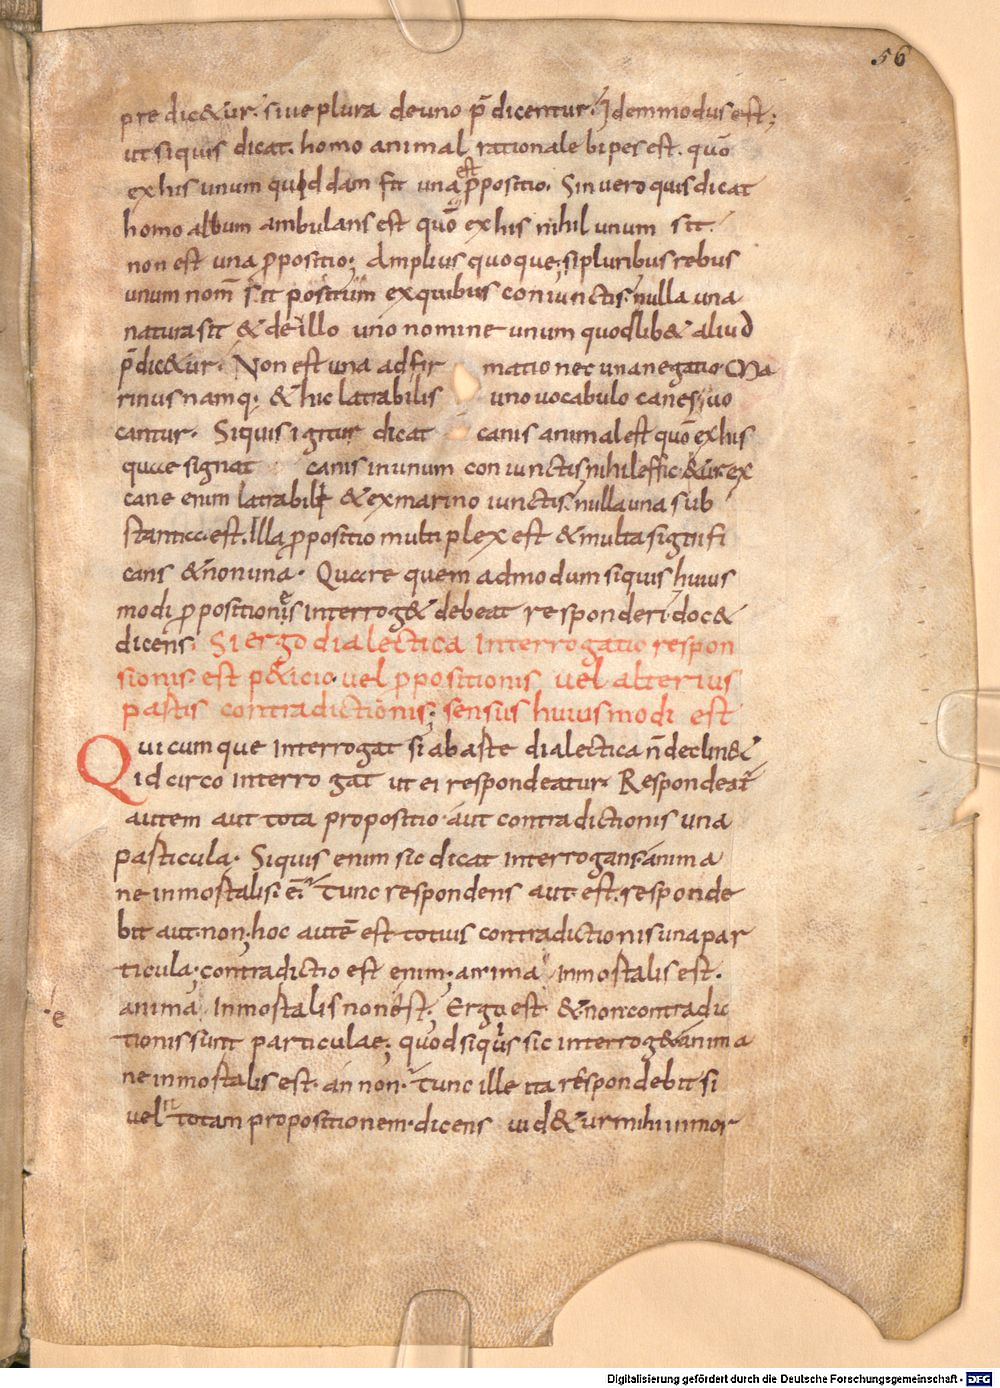 56
predic&ur. siue plura de uno p̄dicentur. Idem modus est;
ut si quis dicat. homo animal rationale bipes est. quō
ex his unum quiddam fit una est ppositio. Sin uero quis dicat
homo album ambulans est quō ex his nihil unum sit.
non est una ppositio; Amplius quoque; si pluribus rebus
unum nom̄ sit positum ex quibus coniunctis. nulla una
natura sit & de illo uno nomine unum quodlib& aliud
p̄dic&ur. Non est una adfirmatio nec una negatio. Ma
rinus namq; & hic latrabilis uno uocabulo canes uo
cantur. Si quis igitur dicat canis animal est quō ex his
quae signat canis in unum coniunctis; nihil effic&ur ex
cane enim latrabili & ex marino iunctis; nulla una sub
stantia est. Illa ppositio multiplex est & multa signifi
cans & non una. Quare quem admodum si quis huius
modi ppositiones interrog& debeat responderi. doc&
dicens. Si ergo dialectica interrogatio respon
sionis est p&icio. uel ppositionis uel alterius
partis contradictionis; sensus huiusmodi est
Quicumque interrogat si ab arte dialectica n̄ declin&
idcirco interrogat ut ei respondeatur. Respondeat̄
autem aut tota propositio. aut contradictionis una
particula. Si quis enim sic dicat interrogans. anima
ne inmortalis. ē. Tunc respondens aut est. responde
bit aut. non; hoc autē est totius contradictionis una par
ticula; contradictio est enim; anima inmortalis est.
anima inmortalis non est; Ergo est & non contradic
tionis sunt particulae; quod si quis sic interrog& anima
ne inmortalis est. an non. Tunc ille ita respondebit si
uelit totam propositionem. dicens uid&ur mihi inmor
Digitalisierung gefördert durch die Deutsche Forschungsgemeinschaft - DFG